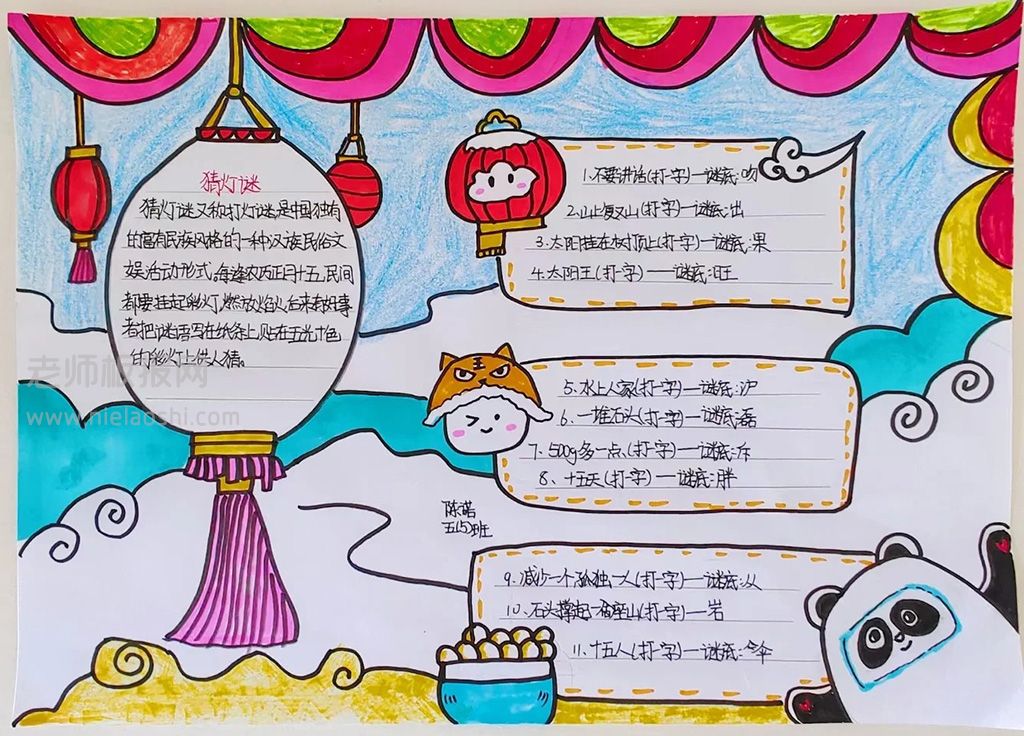 猜灯谜
猜灯谜又称打灯谜,是中国独有
的富有民族风格的一种汉族民俗文
娱活动形式。每逢农历正月十五,民间
都要挂起彩灯,燃放焰火,后来有好事
者把谜语写在纸条上,贴在五光十色
的彩灯上供人猜。
老师板报网
www.nielaoshi.com
1.不要讲话(打一字)一谜底:吻
2.山上复又山(打一字)一谜底:出
3.太阳挂在树顶上(打一字)一谜底:果
4.太阳王(打一字)一谜底:旺
5.水上人家(打一字)一谜底:沪
6.一堆石头(打一字)一谜底:磊
7.500g多一点(打一字)一谜底:斥
8.十五天(打一字)一谜底:胖
陈喏
五(5)班
9.减少一个孤独一人(打一字)一谜底:从
10.石头撑起一座山(打一字)一岩
11.十五人(打一字)一谜底:伞